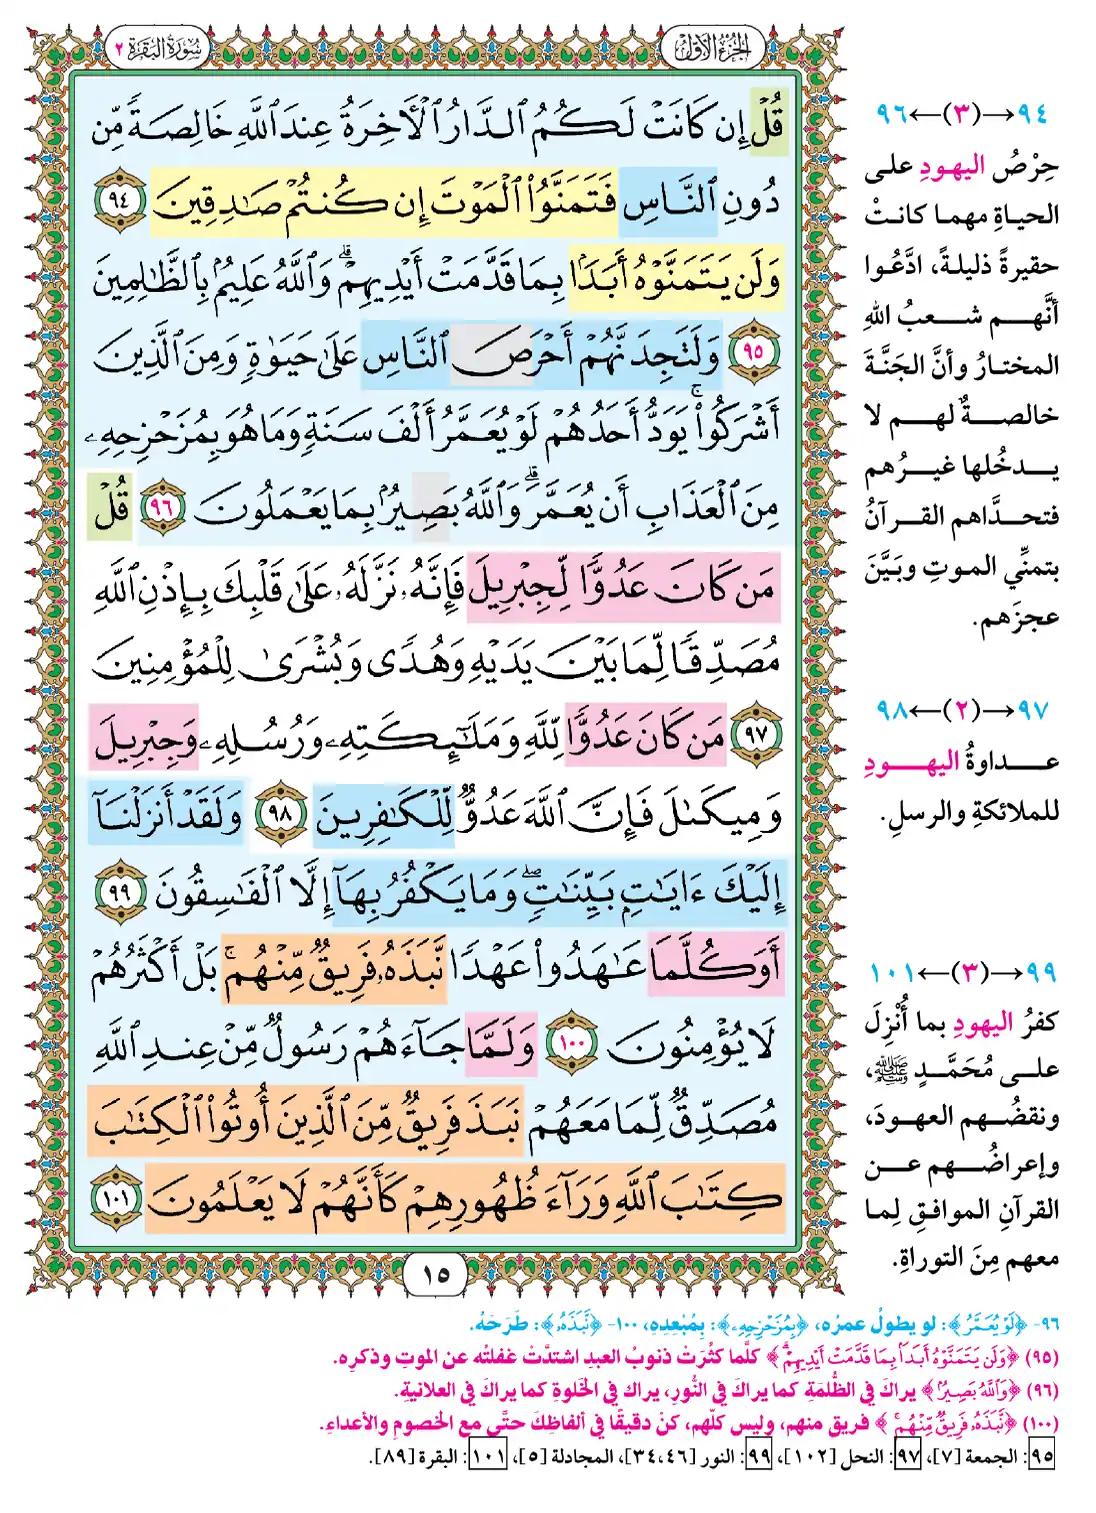 الجزء الأول
سورة البقرة ٢
قُلْ إِن كَانَتْ لَكُمُ ٱلدَّارُ ٱلْأَخِرَةُ عِندَ ٱللَّهِ خَالِصَةً مِّن
دُونِ ٱلنَّاسِ فَتَمَنَّوُا۟ ٱلْمَوْتَ إِن كُنتُمْ صَـٰدِقِينَ ٩٤
وَلَن يَتَمَنَّوْهُ أَبَدًۢا بِمَا قَدَّمَتْ أَيْدِيهِمْ ۗ وَٱللَّهُ عَلِيمُۢ بِٱلظَّـٰلِمِينَ
٩٥ وَلَتَجِدَنَّهُمْ أَحْرَصَ ٱلنَّاسِ عَلَىٰ حَيَوٰةٍ وَمِنَ ٱلَّذِينَ
أَشْرَكُوا۟ ۚ يَوَدُّ أَحَدُهُمْ لَوْ يُعَمَّرُ أَلْفَ سَنَةٍ وَمَا هُوَ بِمُزَحْزِحِهِۦ
مِنَ ٱلْعَذَابِ أَن يُعَمَّرَ ۗ وَٱللَّهُ بَصِيرُۢ بِمَا يَعْمَلُونَ ٩٦ قُلْ
مَن كَانَ عَدُوًّا لِّجِبْرِيلَ فَإِنَّهُۥ نَزَّلَهُۥ عَلَىٰ قَلْبِكَ بِإِذْنِ ٱللَّهِ
مُصَدِّقًا لِّمَا بَيْنَ يَدَيْهِ وَهُدًى وَبُشْرَىٰ لِلْمُؤْمِنِينَ
٩٧ مَن كَانَ عَدُوًّا لِّلَّهِ وَمَلَـٰٓئِكَتِهِۦ وَرُسُلِهِۦ وَجِبْرِيلَ
وَمِيكَىٰلَ فَإِنَّ ٱللَّهَ عَدُوٌّ لِّلْكَـٰفِرِينَ ٩٨ وَلَقَدْ أَنزَلْنَآ
إِلَيْكَ ءَايَـٰتٍۭ بَيِّنَـٰتٍ ۖ وَمَا يَكْفُرُ بِهَآ إِلَّا ٱلْفَـٰسِقُونَ ٩٩
أَوَكُلَّمَا عَـٰهَدُوا۟ عَهْدًا نَّبَذَهُۥ فَرِيقٌ مِّنْهُم ۚ بَلْ أَكْثَرُهُمْ
لَا يُؤْمِنُونَ ١٠٠ وَلَمَّا جَآءَهُمْ رَسُولٌ مِّنْ عِندِ ٱللَّهِ
مُصَدِّقٌ لِّمَا مَعَهُمْ نَبَذَ فَرِيقٌ مِّنَ ٱلَّذِينَ أُوتُوا۟ ٱلْكِتَـٰبَ
كِتَـٰبَ ٱللَّهِ وَرَآءَ ظُهُورِهِمْ كَأَنَّهُمْ لَا يَعْلَمُونَ ١٠١
١٥
٩٤→(٣)←٩٦
حِرْصُ اليهودِ على
الحياةِ مهما كانتْ
حقيرةً ذليلةً، ادَّعُوا
أنَّهم شعبُ اللهِ
المختارُ وأنَّ الجَنَّةَ
خالصةٌ لهم لا
يدخُلها غيرُهم
فتحدَّاهم القرآنُ
بتمنِّي الموتِ وبَيَّنَ
عجزَهم.
٩٧→(٢)←٩٨
عداوةُ اليهودِ
للملائكةِ والرسلِ.
٩٩→(٣)←١٠١
كفرُ اليهودِ بما أُنْزِلَ
على مُحَمَّدٍ ﷺ،
ونقضُهم العهودَ،
وإعراضُهم عن
القرآنِ الموافقِ لِما
معهم مِنَ التوراةِ.
٩٦- ﴿لَوْ يُعَمَّرُ﴾: لو يطولُ عمرُه، ﴿بِمُزَحْزِحِهِۦ﴾: بِمُبْعِدِهِ، ١٠٠- ﴿نَّبَذَهُۥ﴾: طَرَحَهُ.
(٩٥) ﴿وَلَن يَتَمَنَّوْهُ أَبَدًۢا بِمَا قَدَّمَتْ أَيْدِيهِمْ ۗ﴾ كلَّما كثُرَتْ ذنوبُ العبدِ اشتدَّتْ غفلتُه عن الموتِ وذكرِه.
(٩٦) ﴿وَٱللَّهُ بَصِيرُۢ﴾ يراكَ في الظُّلمَةِ كما يراكَ في النُّورِ، يراك في الخلوةِ كما يراكَ في العلانيةِ.
(١٠٠) ﴿نَّبَذَهُۥ فَرِيقٌ مِّنْهُم ۚ﴾ فريق منهم، وليس كلّهم، كنْ دقيقًا في ألفاظِكَ حتَّى مع الخصومِ والأعداءِ.
٩٥: الجمعة [٧]، ٩٧: النحل [١٠٢]، ٩٩: النور [٣٤،٤٦]، المجادلة [٥]، ١٠١: البقرة [٨٩].